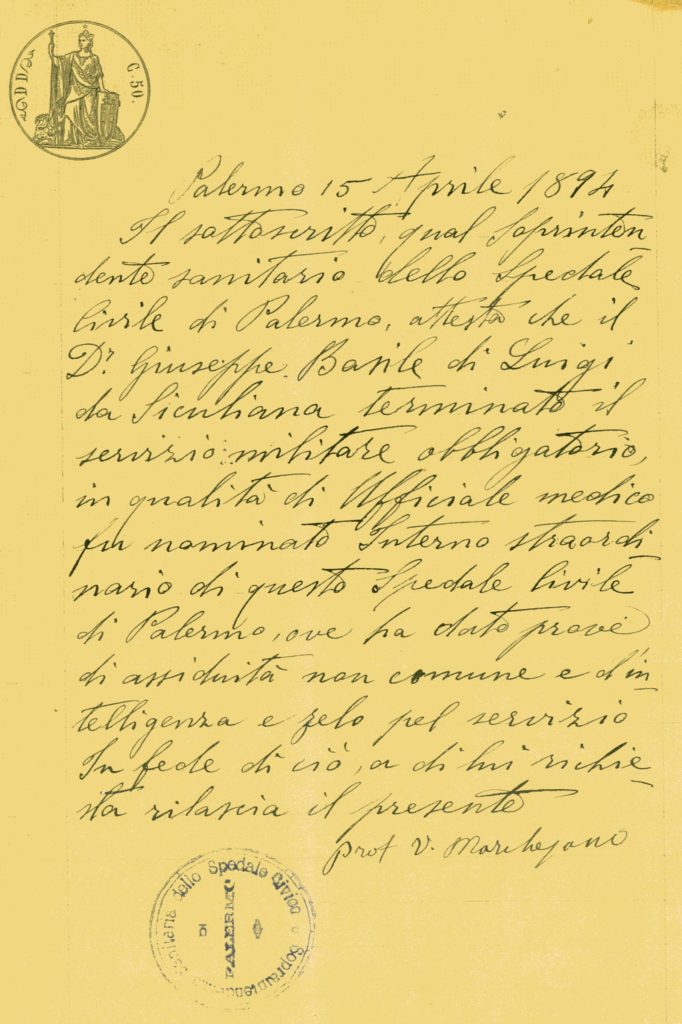 DD
C. 50.
Palermo 15 Aprile 1894
Il sottoscritto, qual Soprinten-
dente sanitario dello Spedale
Civile di Palermo, attesta che il
Dr. Giuseppe Basile di Luigi
da Siculiana terminato il
servizio militare obbligatorio,
in qualità di Ufficiale medico
fu nominato Interno straordi-
nario di questo Spedale Civile
di Palermo, ove ha dato prove
di assiduità non comune e d'in-
telligenza e zelo pel servizio
In fede di ciò, a di lui richie-
sta rilascia il presente
Prof V.
Sanitaria dello Spedale Civico
DI
PALERMO